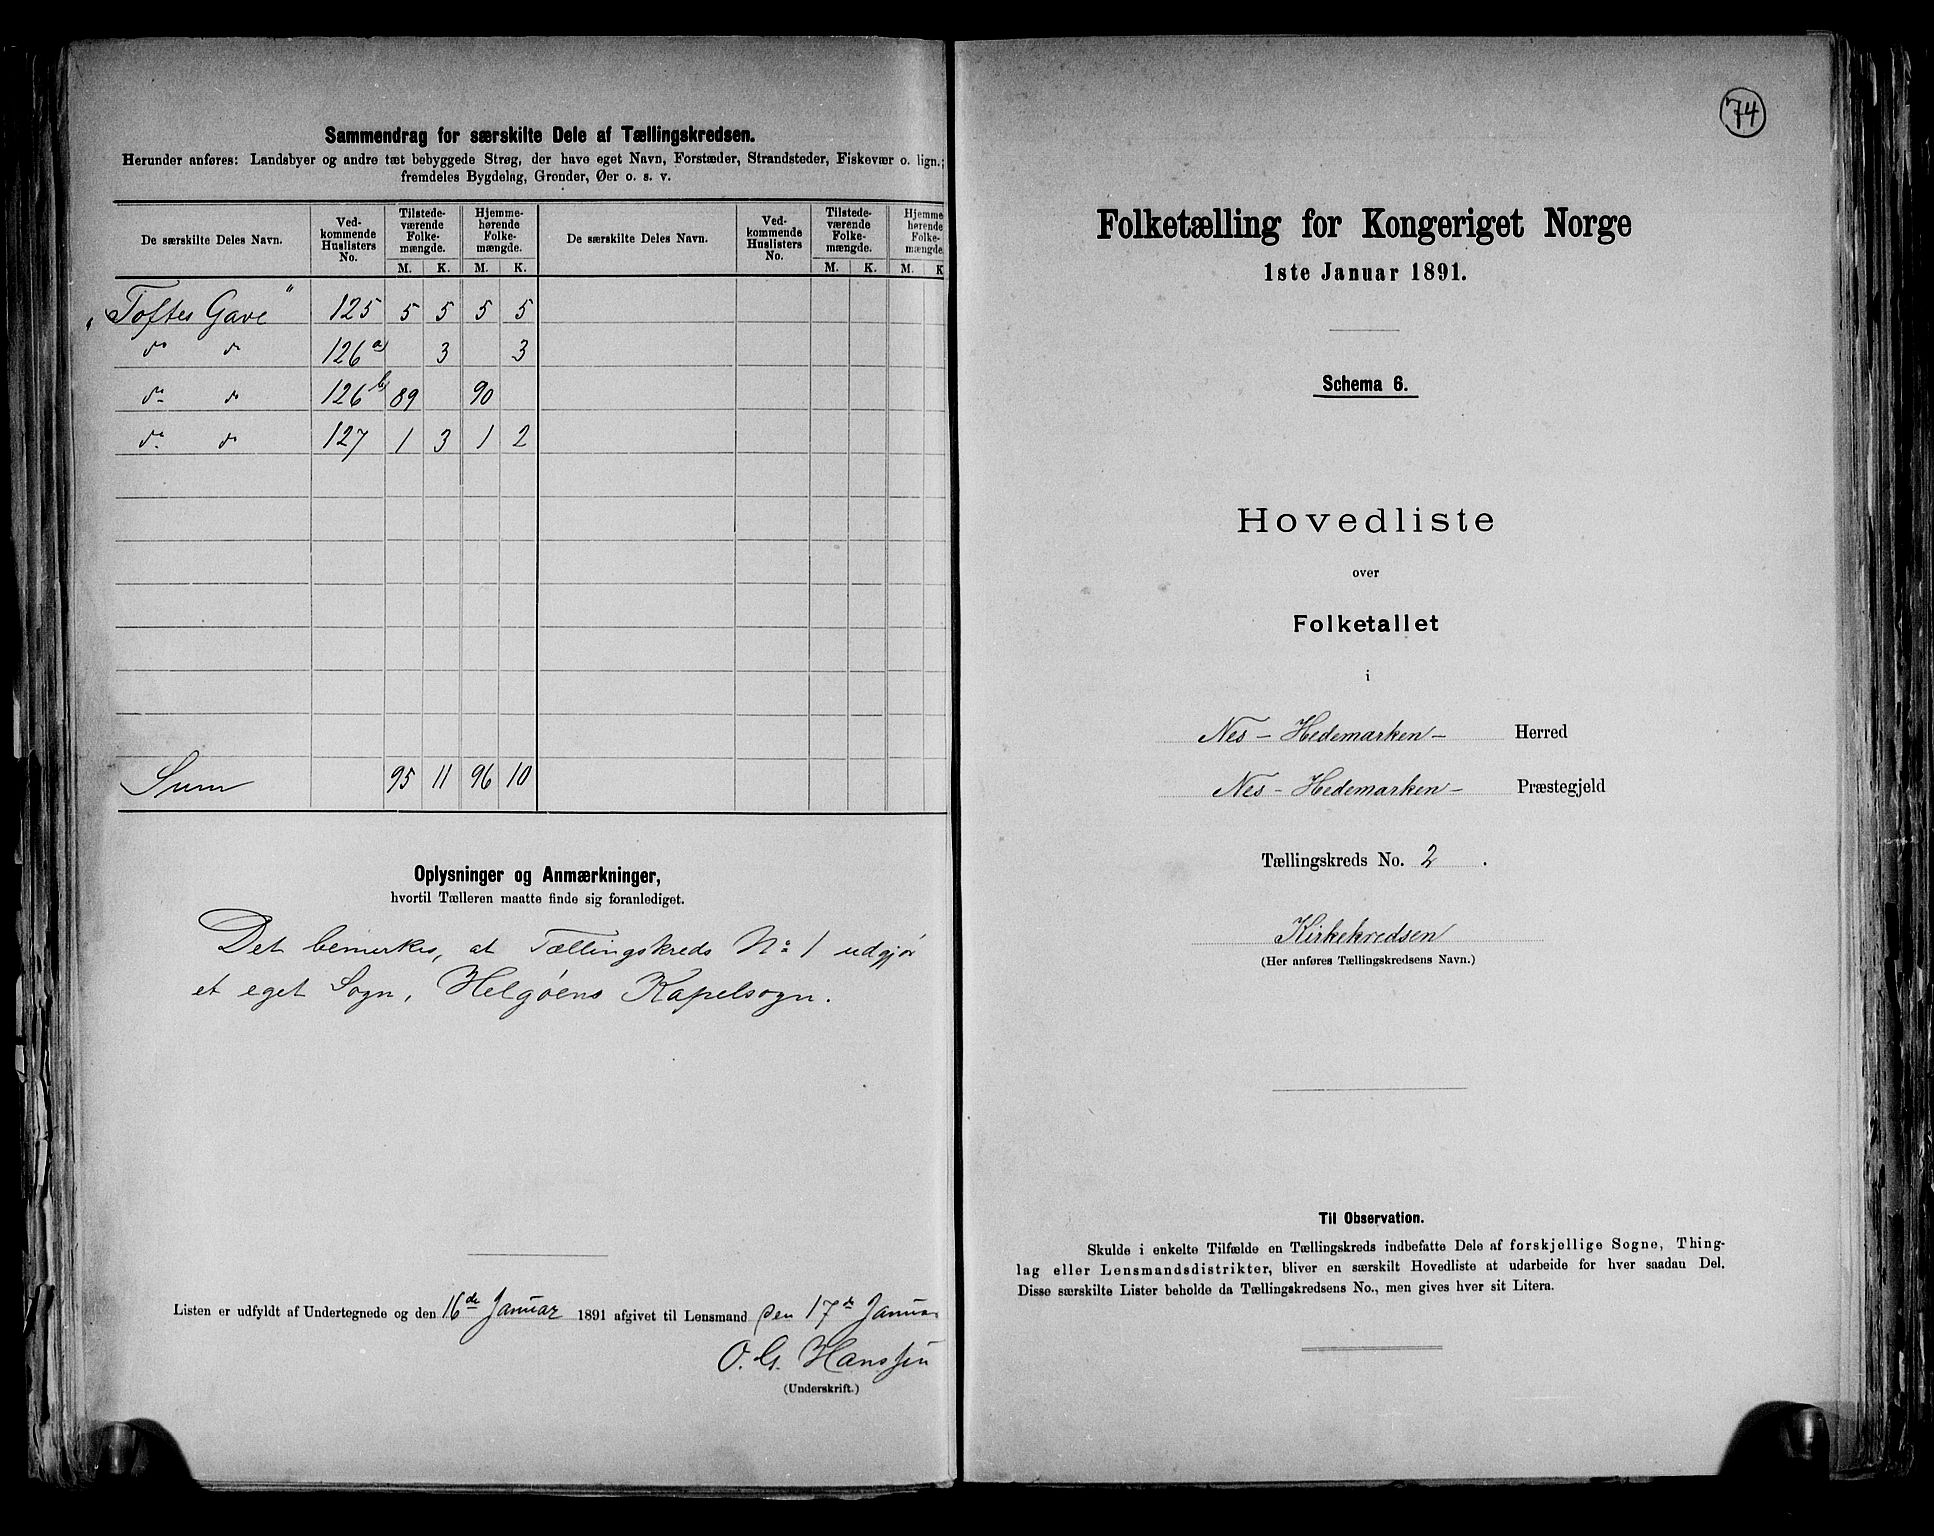 Sammendrag for særskilte Dele af Tællingskredsen.
Herunder anføres: Landsbyer og andre tæt bebyggede Strøg, der have eget Navn, Forstæder, Strandsteder, Fiskevær o. lign.;
fremdeles Bygdelag, Grender, Øer o. s. v.
De særskilte Deles Navn. Ved-kommende Huslisters No. Tilstede-værende Folke-mængde. Hjemme-hørende Folke-mængde. De særskilte Deles Navn. Ved-kommende Huslisters No. Tilstede-værende Folke-mængde. Hjemme-hørende Folke-mængde.
M. K. M. K. M. K. M. K
„Toftes Gave" 125 5 5 5 5
do do 126 a 3 3
do do 126 b 89 90
do do 127 1 3 1 2
Sum 95 11 96 10
Oplysninger og Anmærkninger,
hvortil Tælleren maatte finde sig foranlediget.
Det bemerkes, at Tællingskreds No 1 udgjør
et eget Sogn, Helgøens Kapelsogn.
Listen er udfyldt af Undertegnede og den 16de Januar 1891 afgivet til Lensmand den 17de Januar
O. G. Hanssen
(Underskrift.)
74
Folketælling for Kongeriget Norge
1ste Januar 1891.
Schema 6.
Hovedliste
over
Folketallet
i
Nes - Hedemarken - Herred
Nes - Hedemarken - Præstegjeld
Tællingskreds No. 2 .
Kirkekredsen
(Her anføres Tællingskredsens Navn.)
Til Observation.
Skulde i enkelte Tilfælde en Tællingskreds indbefatte Dele af forskjellige Sogne, Thing-
lag eller Lensmandsdistrikter, bliver en særskilt Hovedliste at udarbeide for hver saadan Del.
Disse særskilte Lister beholde da Tællingskredsens No., men gives hver sit Litera.